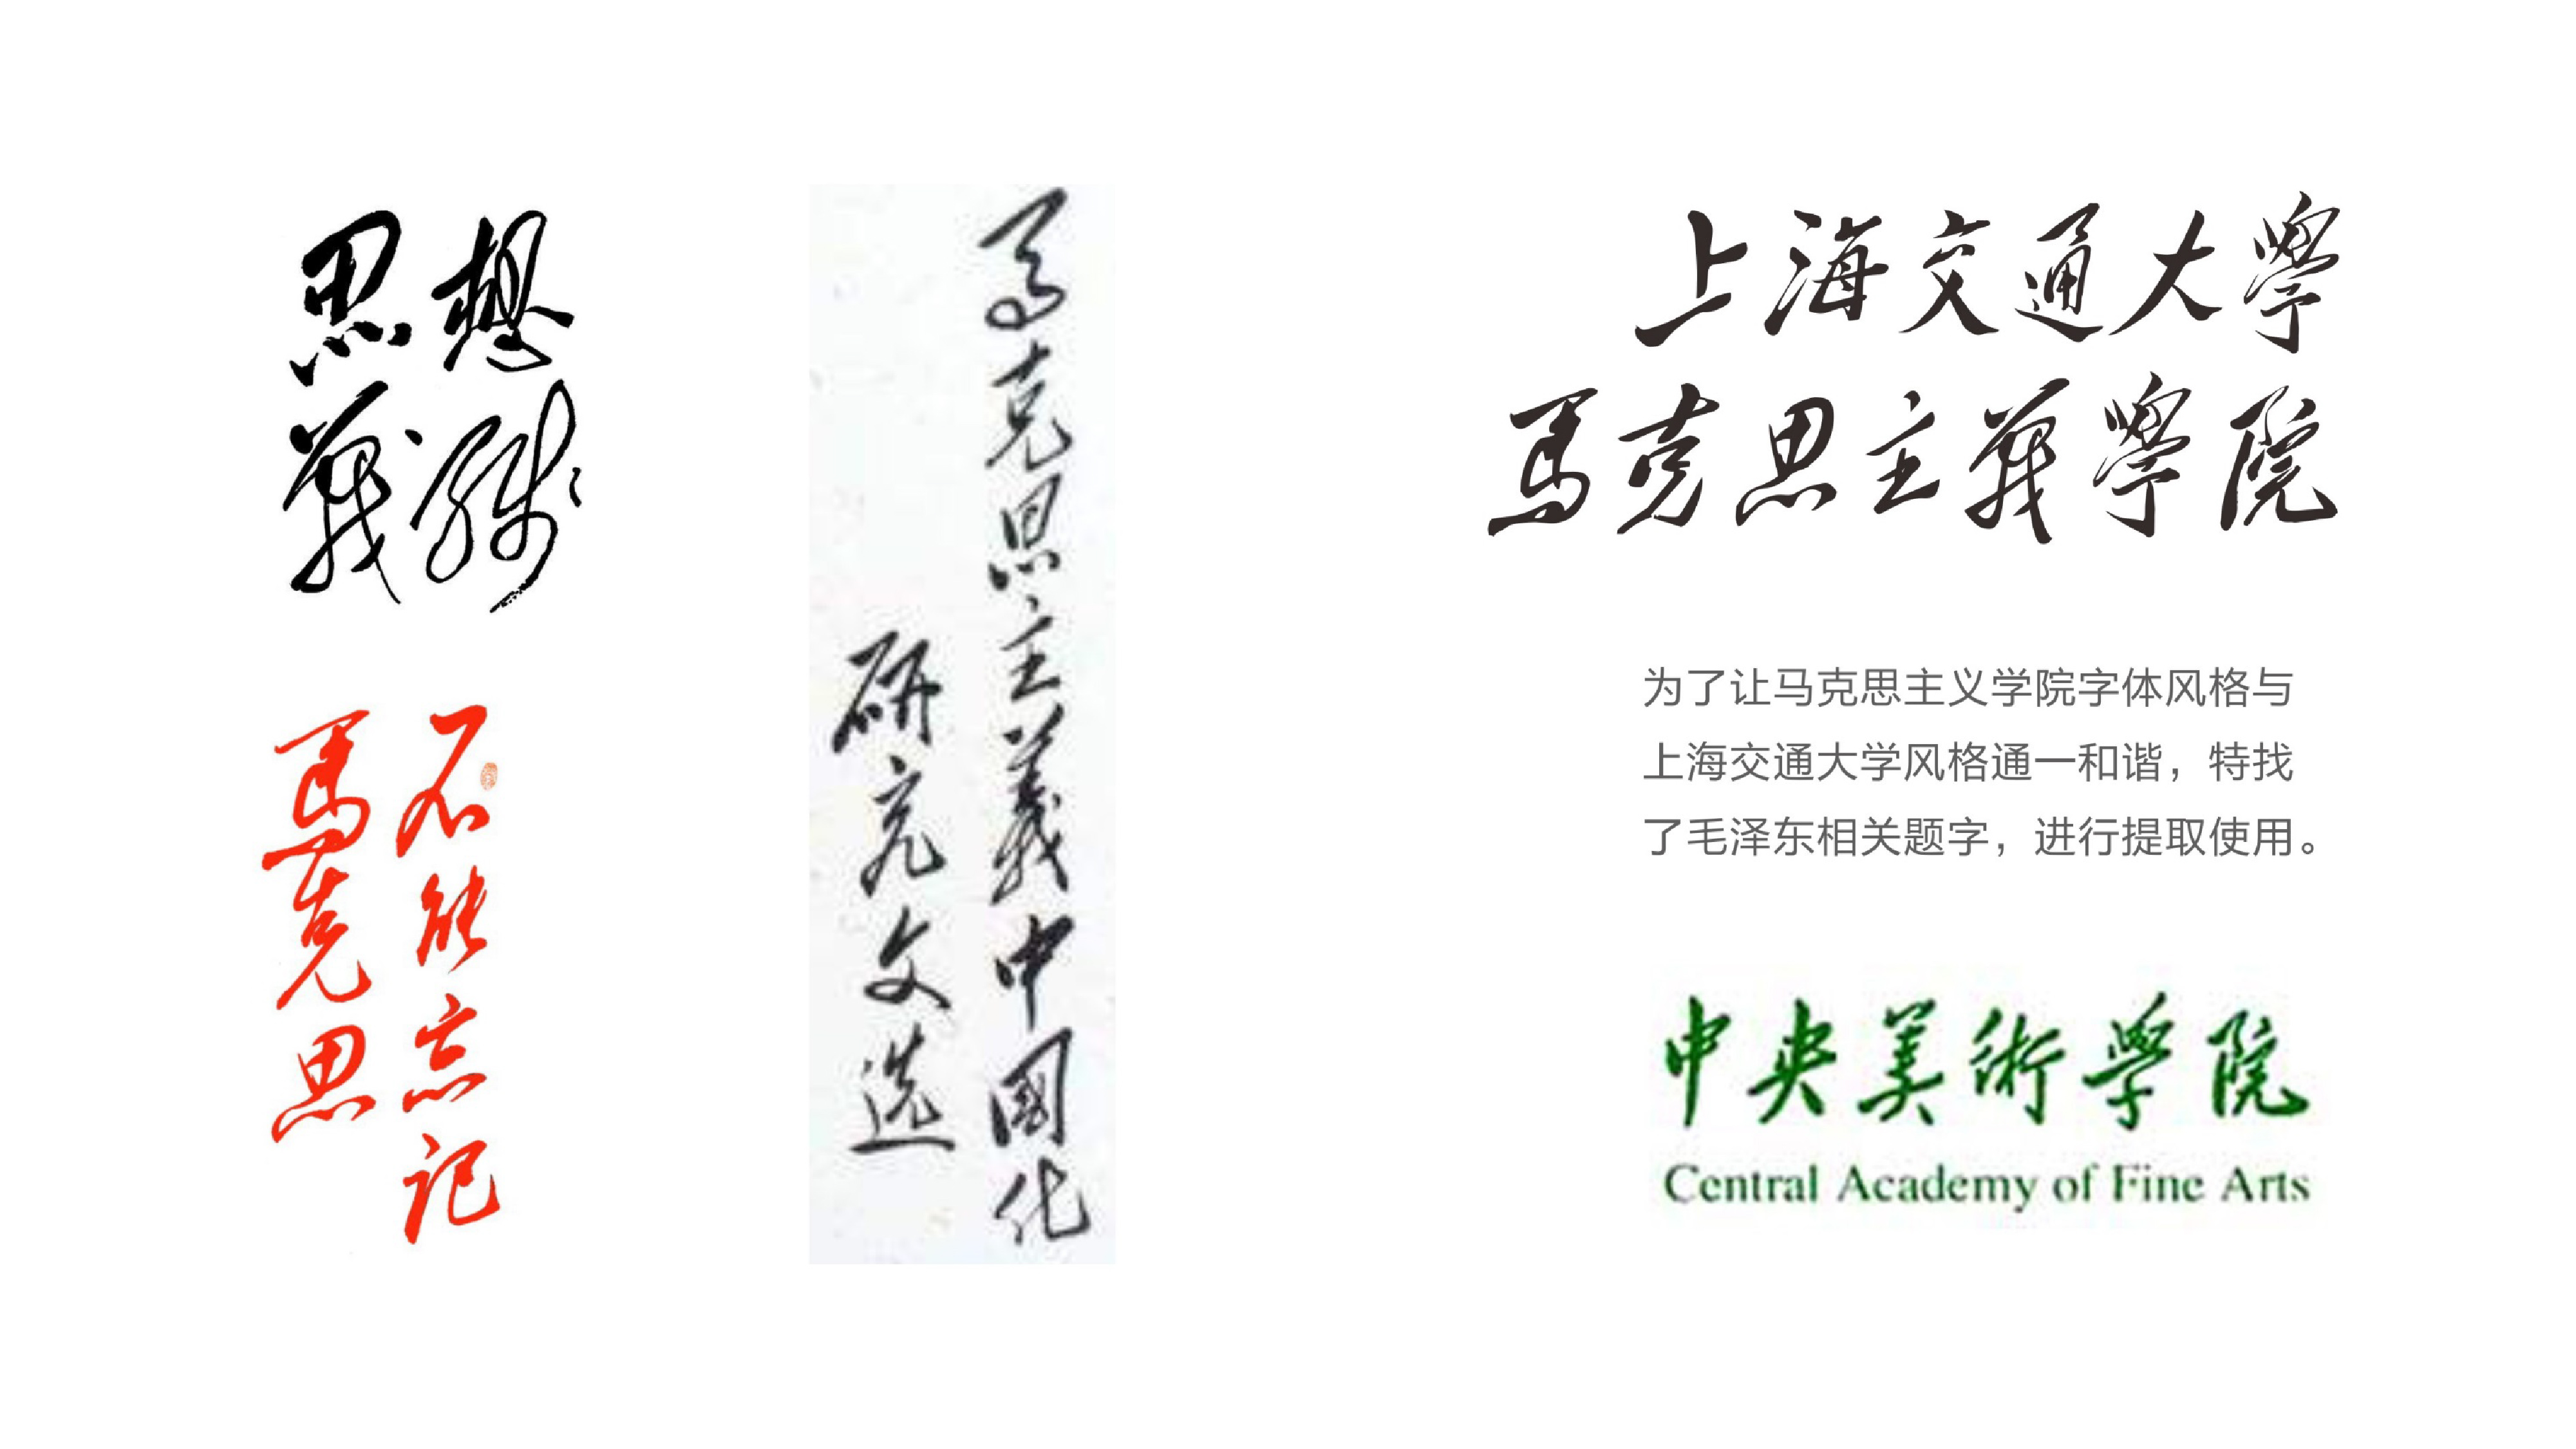 思想
戰綫
不能忘記
馬克思
馬克思主義中國化
研究文选
上海交通大學
馬克思主義學院
为了让马克思主义学院字体风格与
上海交通大学风格通一和谐，特找
了毛泽东相关题字，进行提取使用。
中央美術學院
Central Academy of Fine Arts